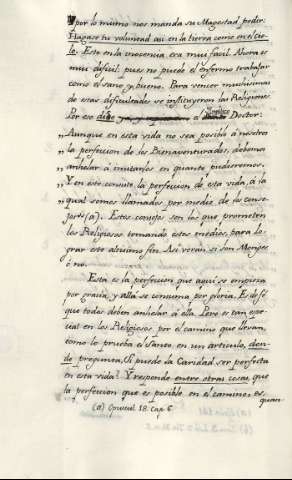 Y por lo mismo nos manda su Magestad pedir:
Hagase tu voluntad asi en la tierra como en el cie-
lo. Esto en la inocencia era mui facil. Ahora es
mui dificil pues no puede el enfermo trabajar
como el sano, y bueno. Para vencer muchisimas
de estas dificultades se instituyeron las Religiones.
Por eso dice el Doctor:
Aunque en esta vida no sea posible á nosotros
„ la perfeccion de los Bienaventurados, debemos
„ anhelar á imitarlos en quanto pudieremos.
„ Y en esto consiste la perfeccion de esta vida, á la
„ qual somos llamados por medio de los conse-
jos (a). Estos consejos son los que prometen
los Religiosos tomando estos medios para lo-
grar este altisimo fin. Asi verán si son Monjes
ó no.
Esta es la perfeccion que aqui se empieza
por gracia, y allá se consuma por gloria. Es de fé
que todos deben anhelar á ella. Pero es tan espe-
cial en los Religiosos por el camino que llevan,
como lo prueba el Santo en un articulo, don-
de pregunta, Si puede la Caridad ser perfecta
en esta vida? Y responde entre otras cosas, que
la perfeccion que es posible en el camino, es
quan-
(a) Opuscul. 18. Cap. 6